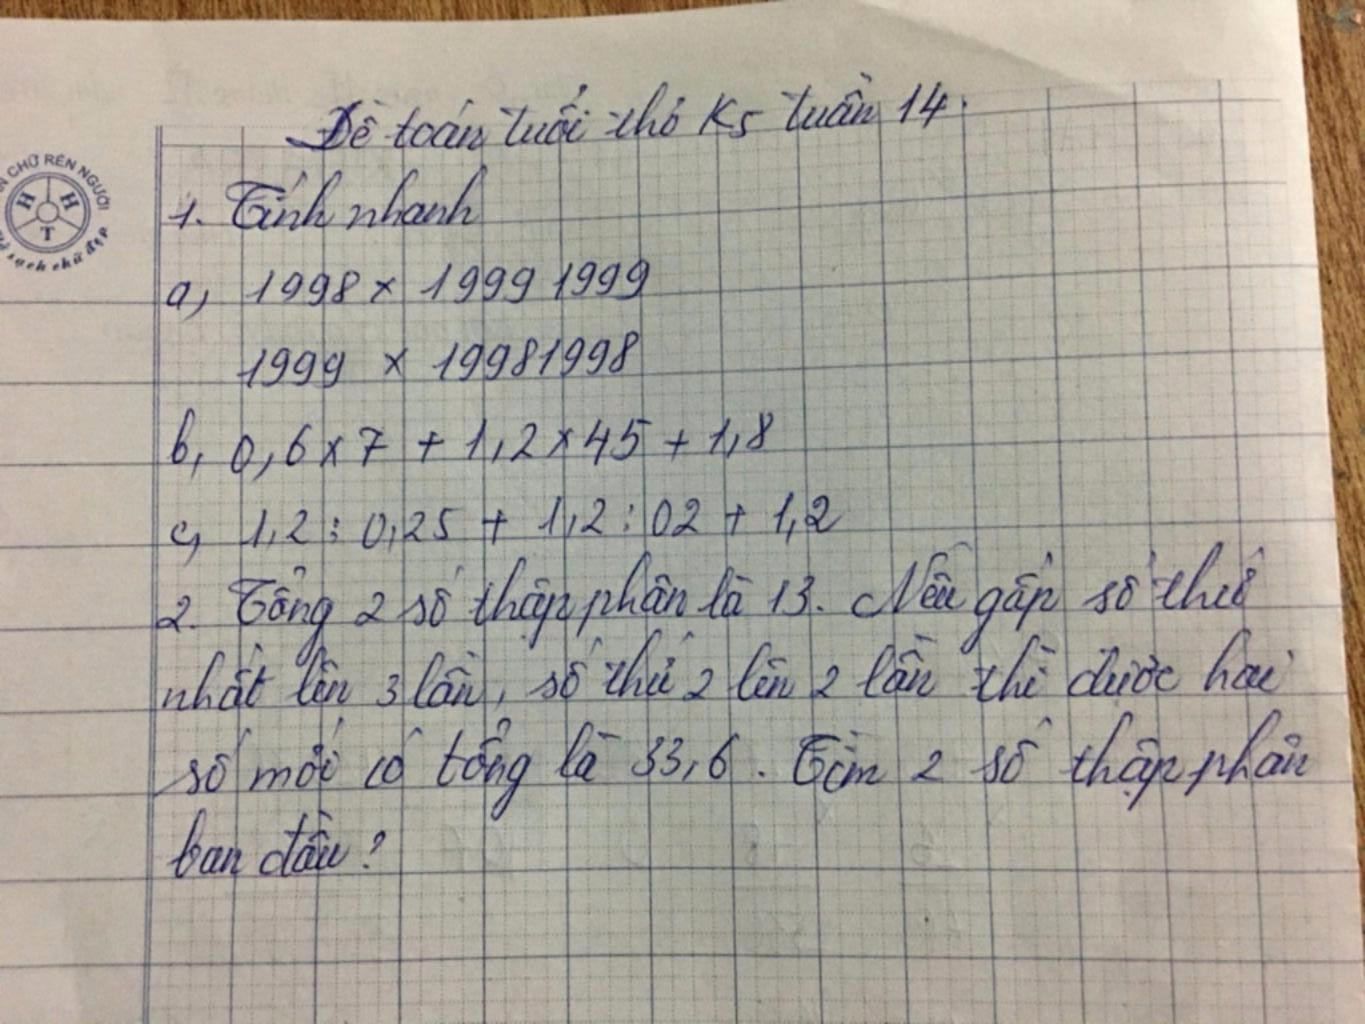 Đề toán tuổi thơ K5 tuần 14.
CHỮ RÈN NGƯỜI
H H
T
sạch chữ đẹp
1. Tính nhanh
a, 1998 x 1999 1999
1999 x 19981998
b, 0,6 x 7 + 1,2 x 45 + 1,8
c, 1,2 : 0,25 + 1,2 : 02 + 1,2
2. Tổng 2 số thập phân là 13. Nếu gấp số thứ
nhất lên 3 lần, số thứ 2 lên 2 lần thì được hai
số mới có tổng là 33,6. Tìm 2 số thập phân
ban đầu?